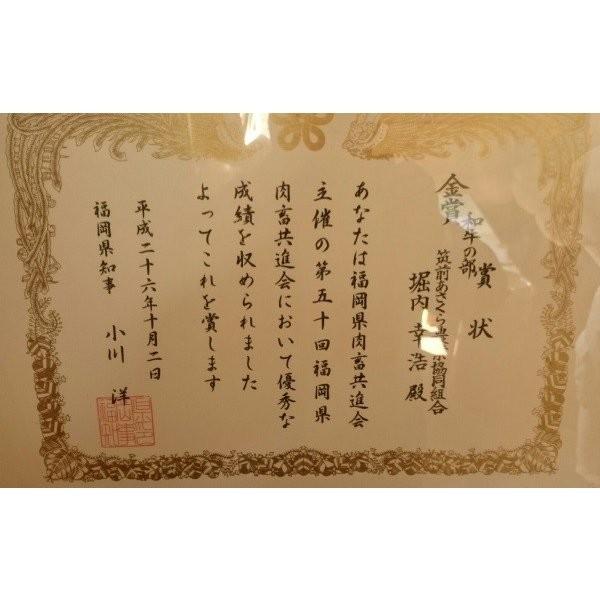 賞状
和牛の部
金賞
筑前あさくら農業協同組合
堀内幸浩殿
あなたは福岡県肉畜共進会
主催の第五十回福岡県
肉畜共進会において優秀な
成績を収められました
よってこれを賞します
平成二十六年十月二日
福岡県知事 小川洋